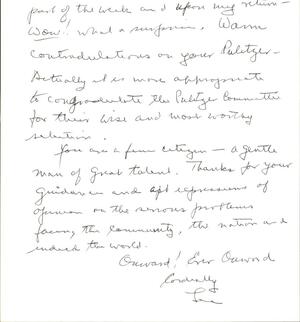 part of the week and upon my return -
Wow! What a surprise. Warm
Contradulations on your Pulitzer.
Actually it is more appropriate
to congradulate the Pulitzer Committee
for their wise and most worthy
selection.
You are a fine citizen - a gentle
man of great talent. Thanks for your
guidance and apt expressions of
opinion on the serious problems
facing the community, the nation and
indeed the world.
Onward! Ever Onward
Cordially